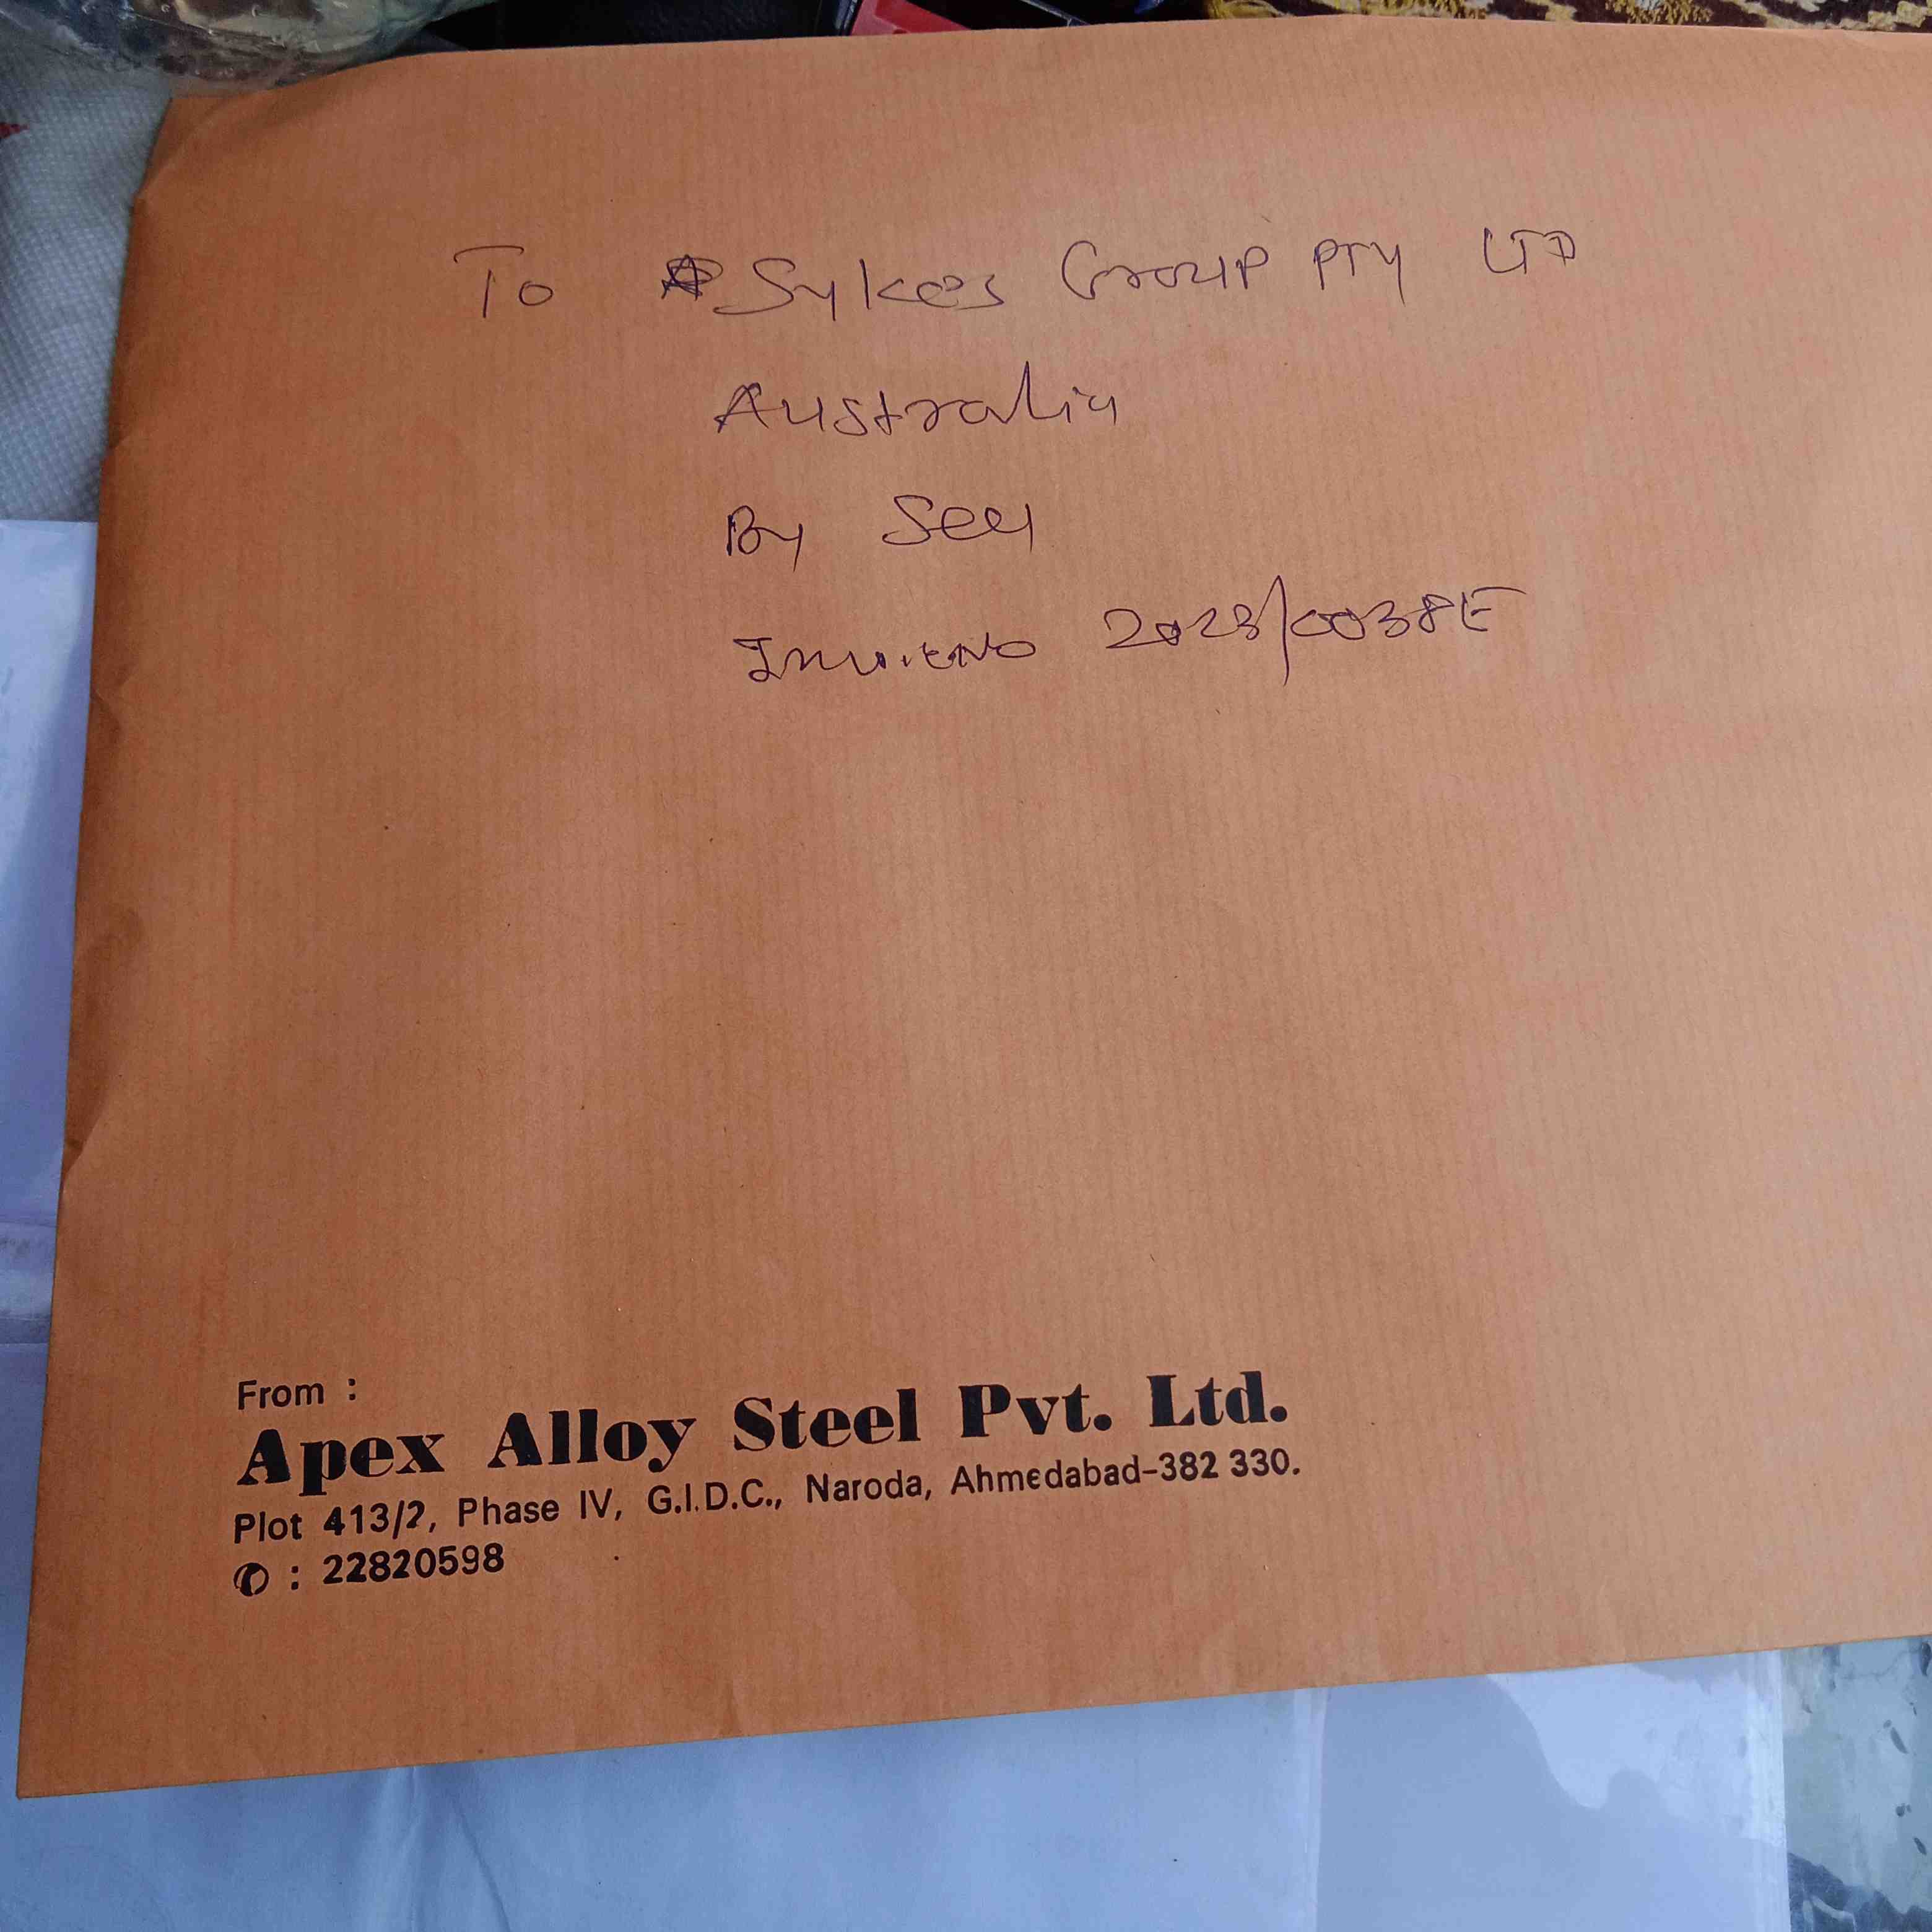 To Sykes Group PTY LTD
Australia
By Sea
Invoice No 2023/0038E
From :
Apex Alloy Steel Pvt. Ltd.
Plot 413/2, Phase IV, G.I.D.C., Naroda, Ahmedabad-382 330.
✆ : 22820598